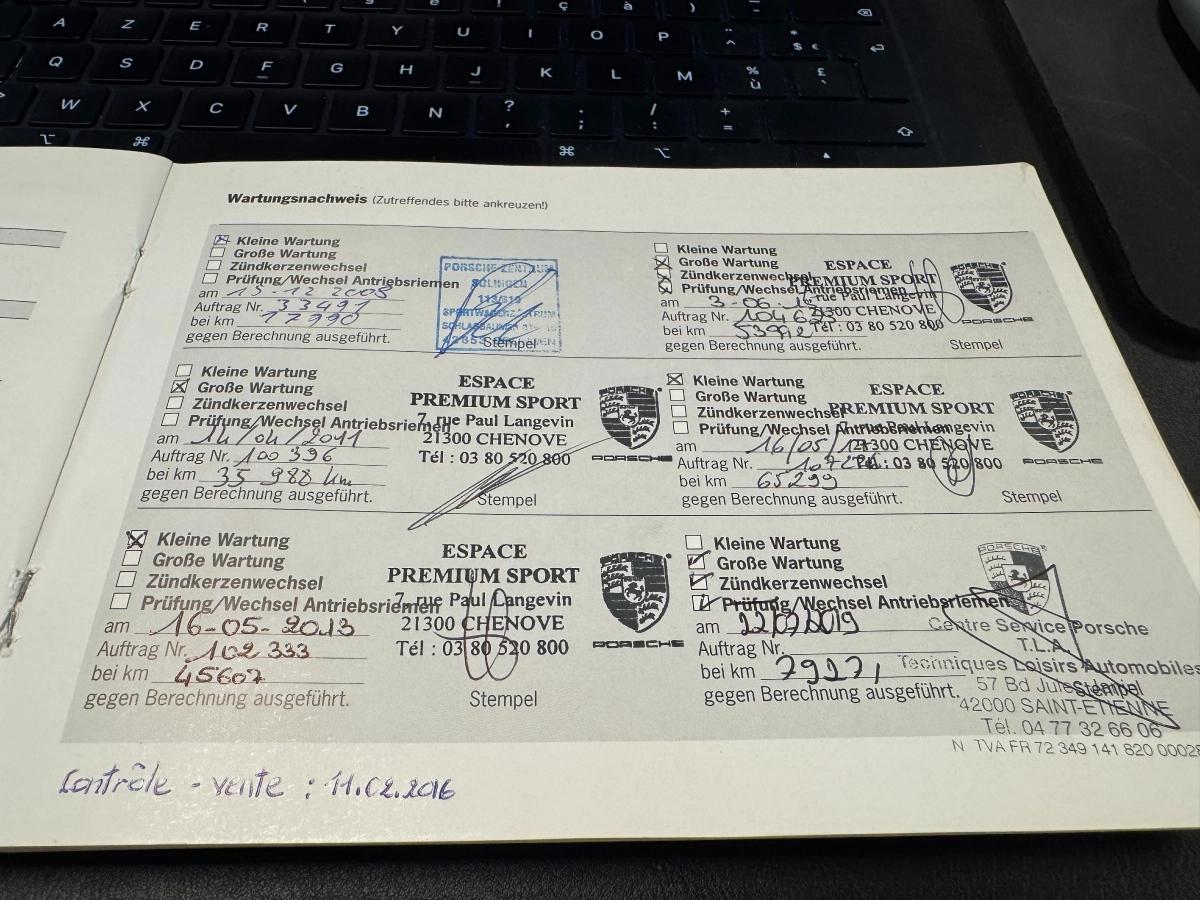 A Z E R T Y U I O P
Q S D F G H J K L M % ù £ `
W X C V B N ? , ; . / : + =
Wartungsnachweis (Zutreffendes bitte ankreuzen!)
Kleine Wartung
Große Wartung
Zündkerzenwechsel
Prüfung/Wechsel Antriebsriemen
am 15-12 2008
Auftrag Nr. 33491
bei km 17990
gegen Berechnung ausgeführt.
PORSCHE ZENTRUM
SOLINGEN
Stempel
Kleine Wartung
Große Wartung
Zündkerzenwechsel
Prüfung/Wechsel Antriebsriemen
am 3-06.
Auftrag Nr.
bei km
gegen Berechnung ausgeführt.
ESPACE
PREMIUM SPORT
rue Paul Langevin
21300 CHENOVE
Tél : 03 80 520 800
PORSCHE
Stempel
Kleine Wartung
Große Wartung
Zündkerzenwechsel
Prüfung/Wechsel Antriebsriemen
am 14/04/2011
Auftrag Nr. 100 396
bei km 35 988 km
gegen Berechnung ausgeführt.
ESPACE
PREMIUM SPORT
7, rue Paul Langevin
21300 CHENOVE
Tél : 03 80 520 800
PORSCHE
Stempel
Kleine Wartung
Große Wartung
Zündkerzenwechsel
Prüfung/Wechsel Antriebsriemen
am 16/05/
Auftrag Nr.
bei km 65299
gegen Berechnung ausgeführt.
ESPACE
PREMIUM SPORT
rue Paul Langevin
21300 CHENOVE
Tél : 03 80 520 800
PORSCHE
Stempel
Kleine Wartung
Große Wartung
Zündkerzenwechsel
Prüfung/Wechsel Antriebsriemen
am 16-05-2013
Auftrag Nr. 102 333
bei km 45607
gegen Berechnung ausgeführt.
ESPACE
PREMIUM SPORT
7, rue Paul Langevin
21300 CHENOVE
Tél : 03 80 520 800
PORSCHE
Stempel
Kleine Wartung
Große Wartung
Zündkerzenwechsel
Prüfung/Wechsel Antriebsriemen
am 22/07/2019
Auftrag Nr.
bei km
gegen Berechnung ausgeführt.
PORSCHE
Centre Service Porsche
T.L.A.
Techniques Loisirs Automobiles
57 Bd Jules
Stempel
42000 SAINT-ETIENNE
Tél. 04 77 32 66 06
N TVA FR 72 349 141 820 00028
Contrôle - vente : 11.02.2016